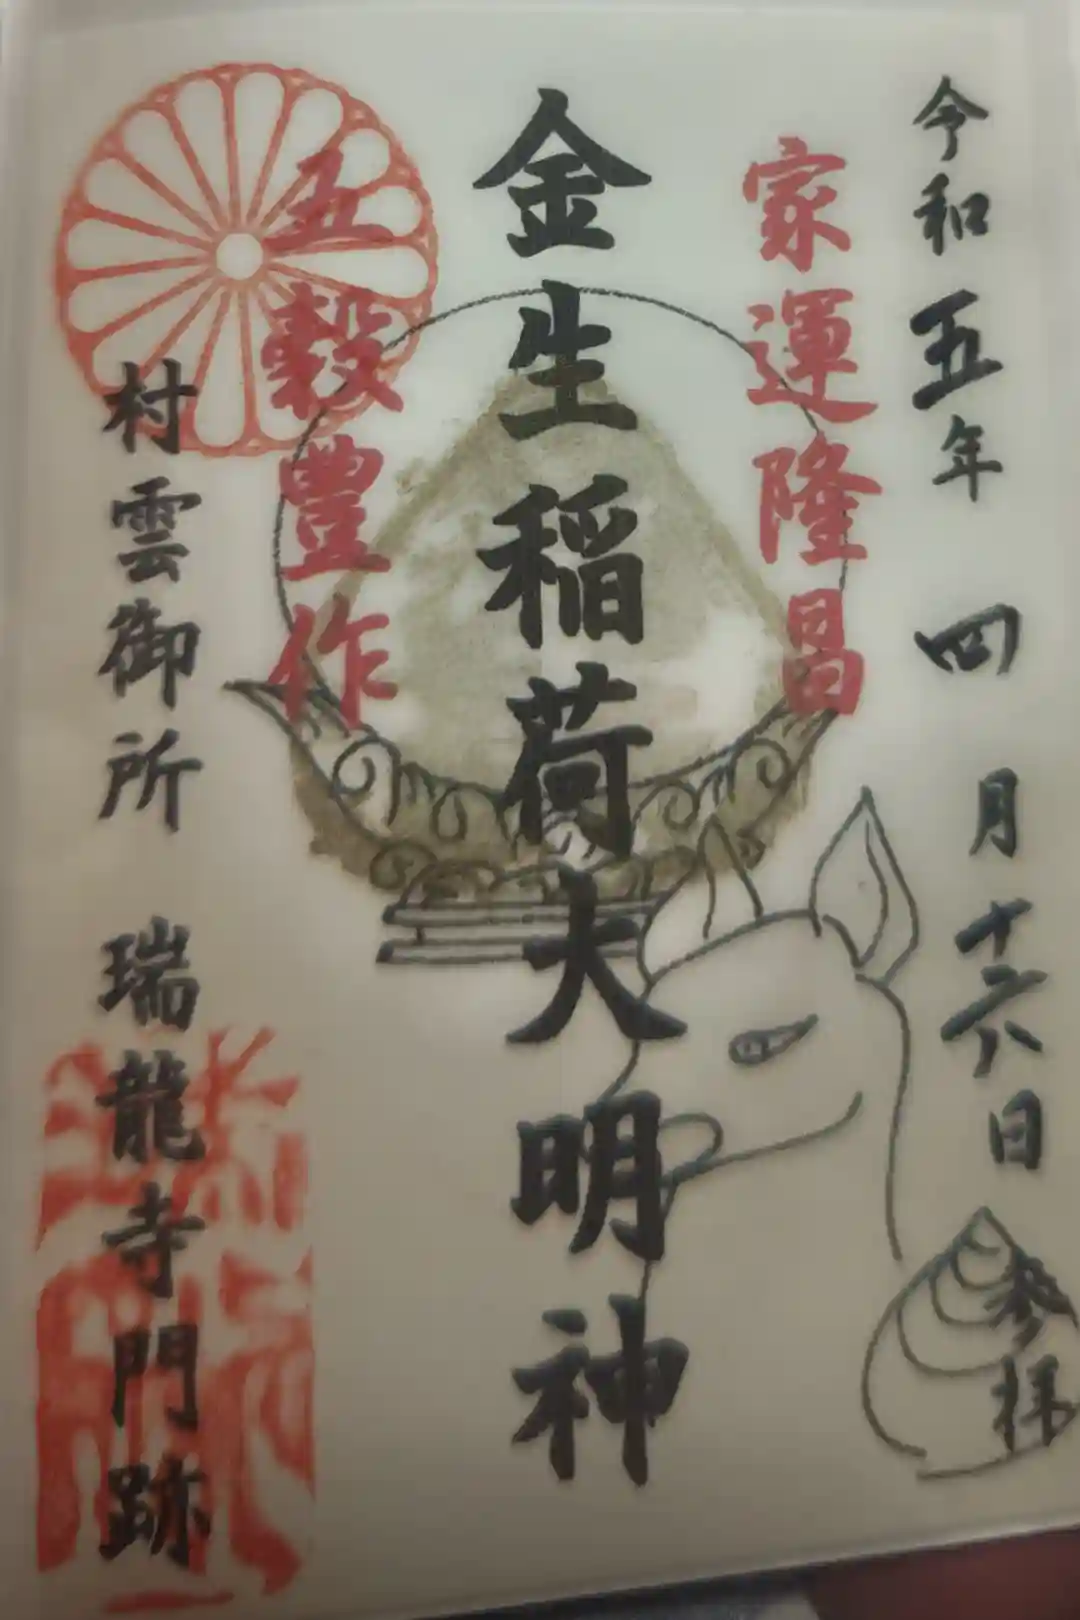 令和五年 四月十六日 参拝
家運隆昌
金生稲荷大明神
五穀豊作
村雲御所 瑞龍寺門跡